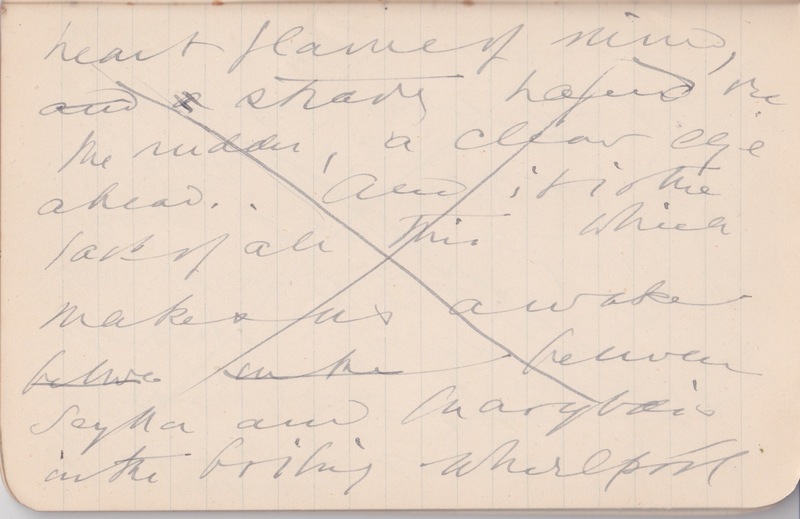 heart flame of mind,
and a steady hand on
the rudder, a clear eye
ahead. And it is the
lack of all this which
makes us awake
between in the between
Scylla and Charybdis
in the boiling whirlpool